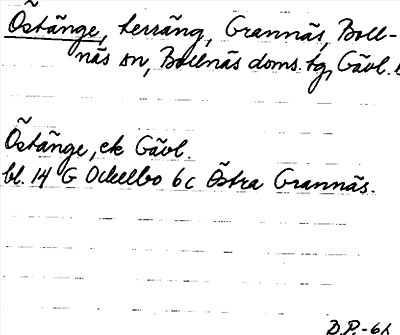 Östänge, terräng, Grannäs, Boll-
näs sn, Bollnäs doms. tg, Gävl.
Östänge, ek Gävl.
bl. 14 G Ockelbo 6c Östra Grannäs.
D.P.-61